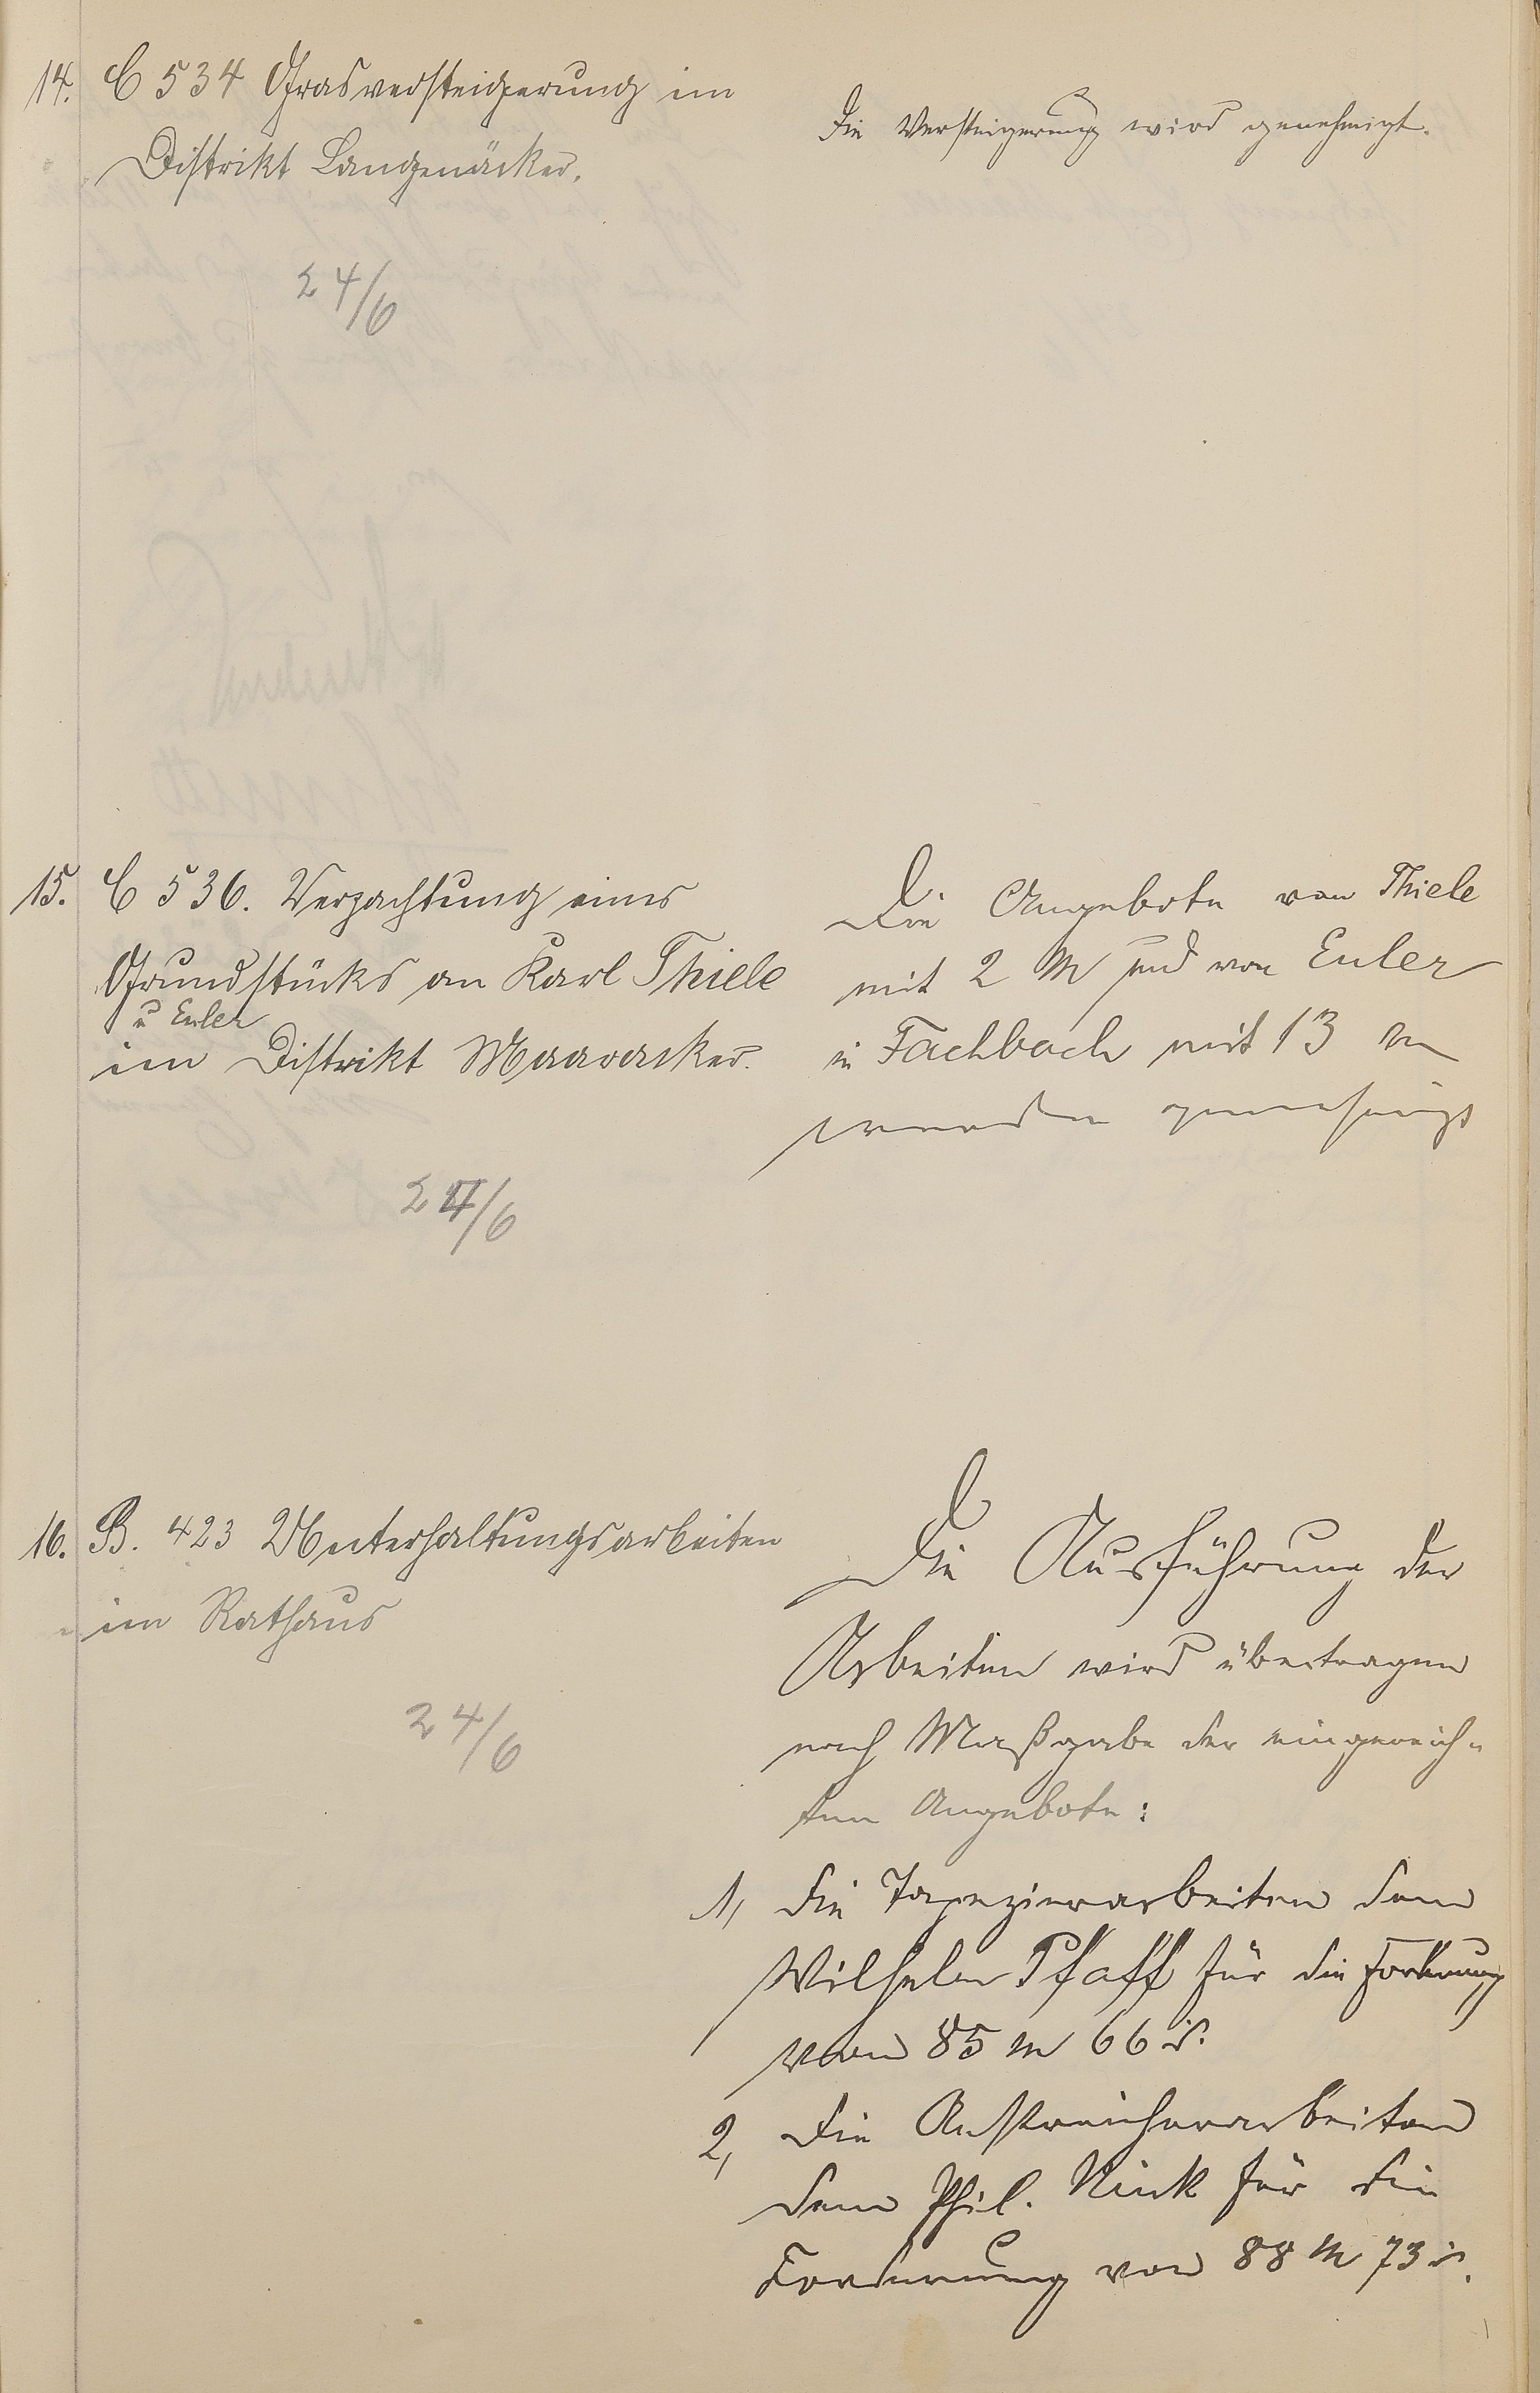 14. C 534 Grasversteigerung im
Distrikt Langenäcker.
24/6
Die Versteigerung wird genehmigt.
15. C 536. Verpachtung eines
Grundstücks an Karl Thiele
u Euler
im Distrikt Maaracker.
24/6
Die Angebote von Thiele
mit 2 M und von Euler
in Fachbach mit 13 M
werden genehmigt
16. B. 423 Unterhaltungsarbeiten
im Rathaus
24/6
Die Ausführung der
Arbeiten wird übertragen
nach Maßgabe der eingereich-
ten Angebote:
1, die Tapezierarbeiten dem
Wilhelm Pfaff für die Forderung
von 85 M 66 d.
2, die Anstreicherarbeiten
dem Phil. Nink für die
Forderung von 88 M 73 d.